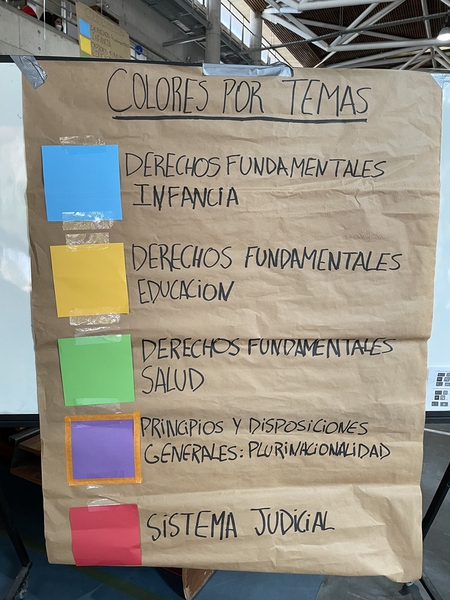 COLORES POR TEMAS
DERECHOS FUNDAMENTALES
INFANCIA
DERECHOS FUNDAMENTALES
EDUCACION
DERECHOS FUNDAMENTALES
SALUD
PRINCIPIOS Y DISPOSICIONES
GENERALES: PLURINACIONALIDAD
SISTEMA JUDICIAL